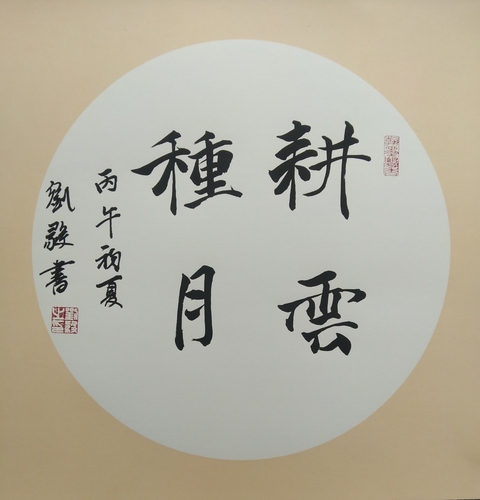 耕雲
種月
丙午初夏
劉毅書